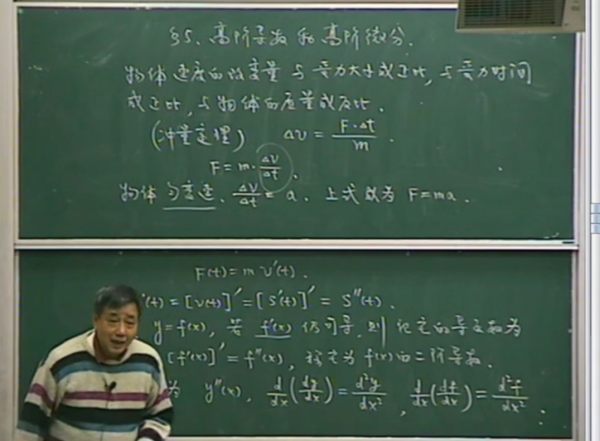 §5. 高阶导数和高阶微分.
物体速度的改变量与受力大小成正比,与受力时间
成正比,与物体的质量成反比.
(冲量定理) Δv = F·Δt / m .
F = m·Δv/Δt .
物体匀变速. Δv/Δt = a. 上式成为 F=ma.
F(t) = m v'(t).
'(t) = [v(t)]' = [s'(t)]' = s''(t).
y=f(x), 若 f'(x) 仍可导, 则它的导数为
[f'(x)]' = f''(x), 称之为 f(x) 的二阶导数.
为 y''(x), d/dx (dy/dx) = d²y/dx², d/dx (df/dx) = d²f/dx².